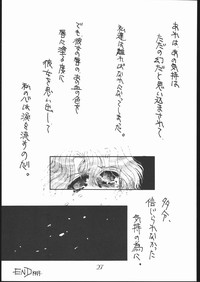 あれは あの気持は
ただの幻だと思い込まされて
私達は離ればなれになってしまった。
でも彼女の唇のあの血の色を
唇に塗る度に
彼女を思い出して
私の心は涙を流すのだ。
多分、
信じられなかった
気持の為に。
31
END